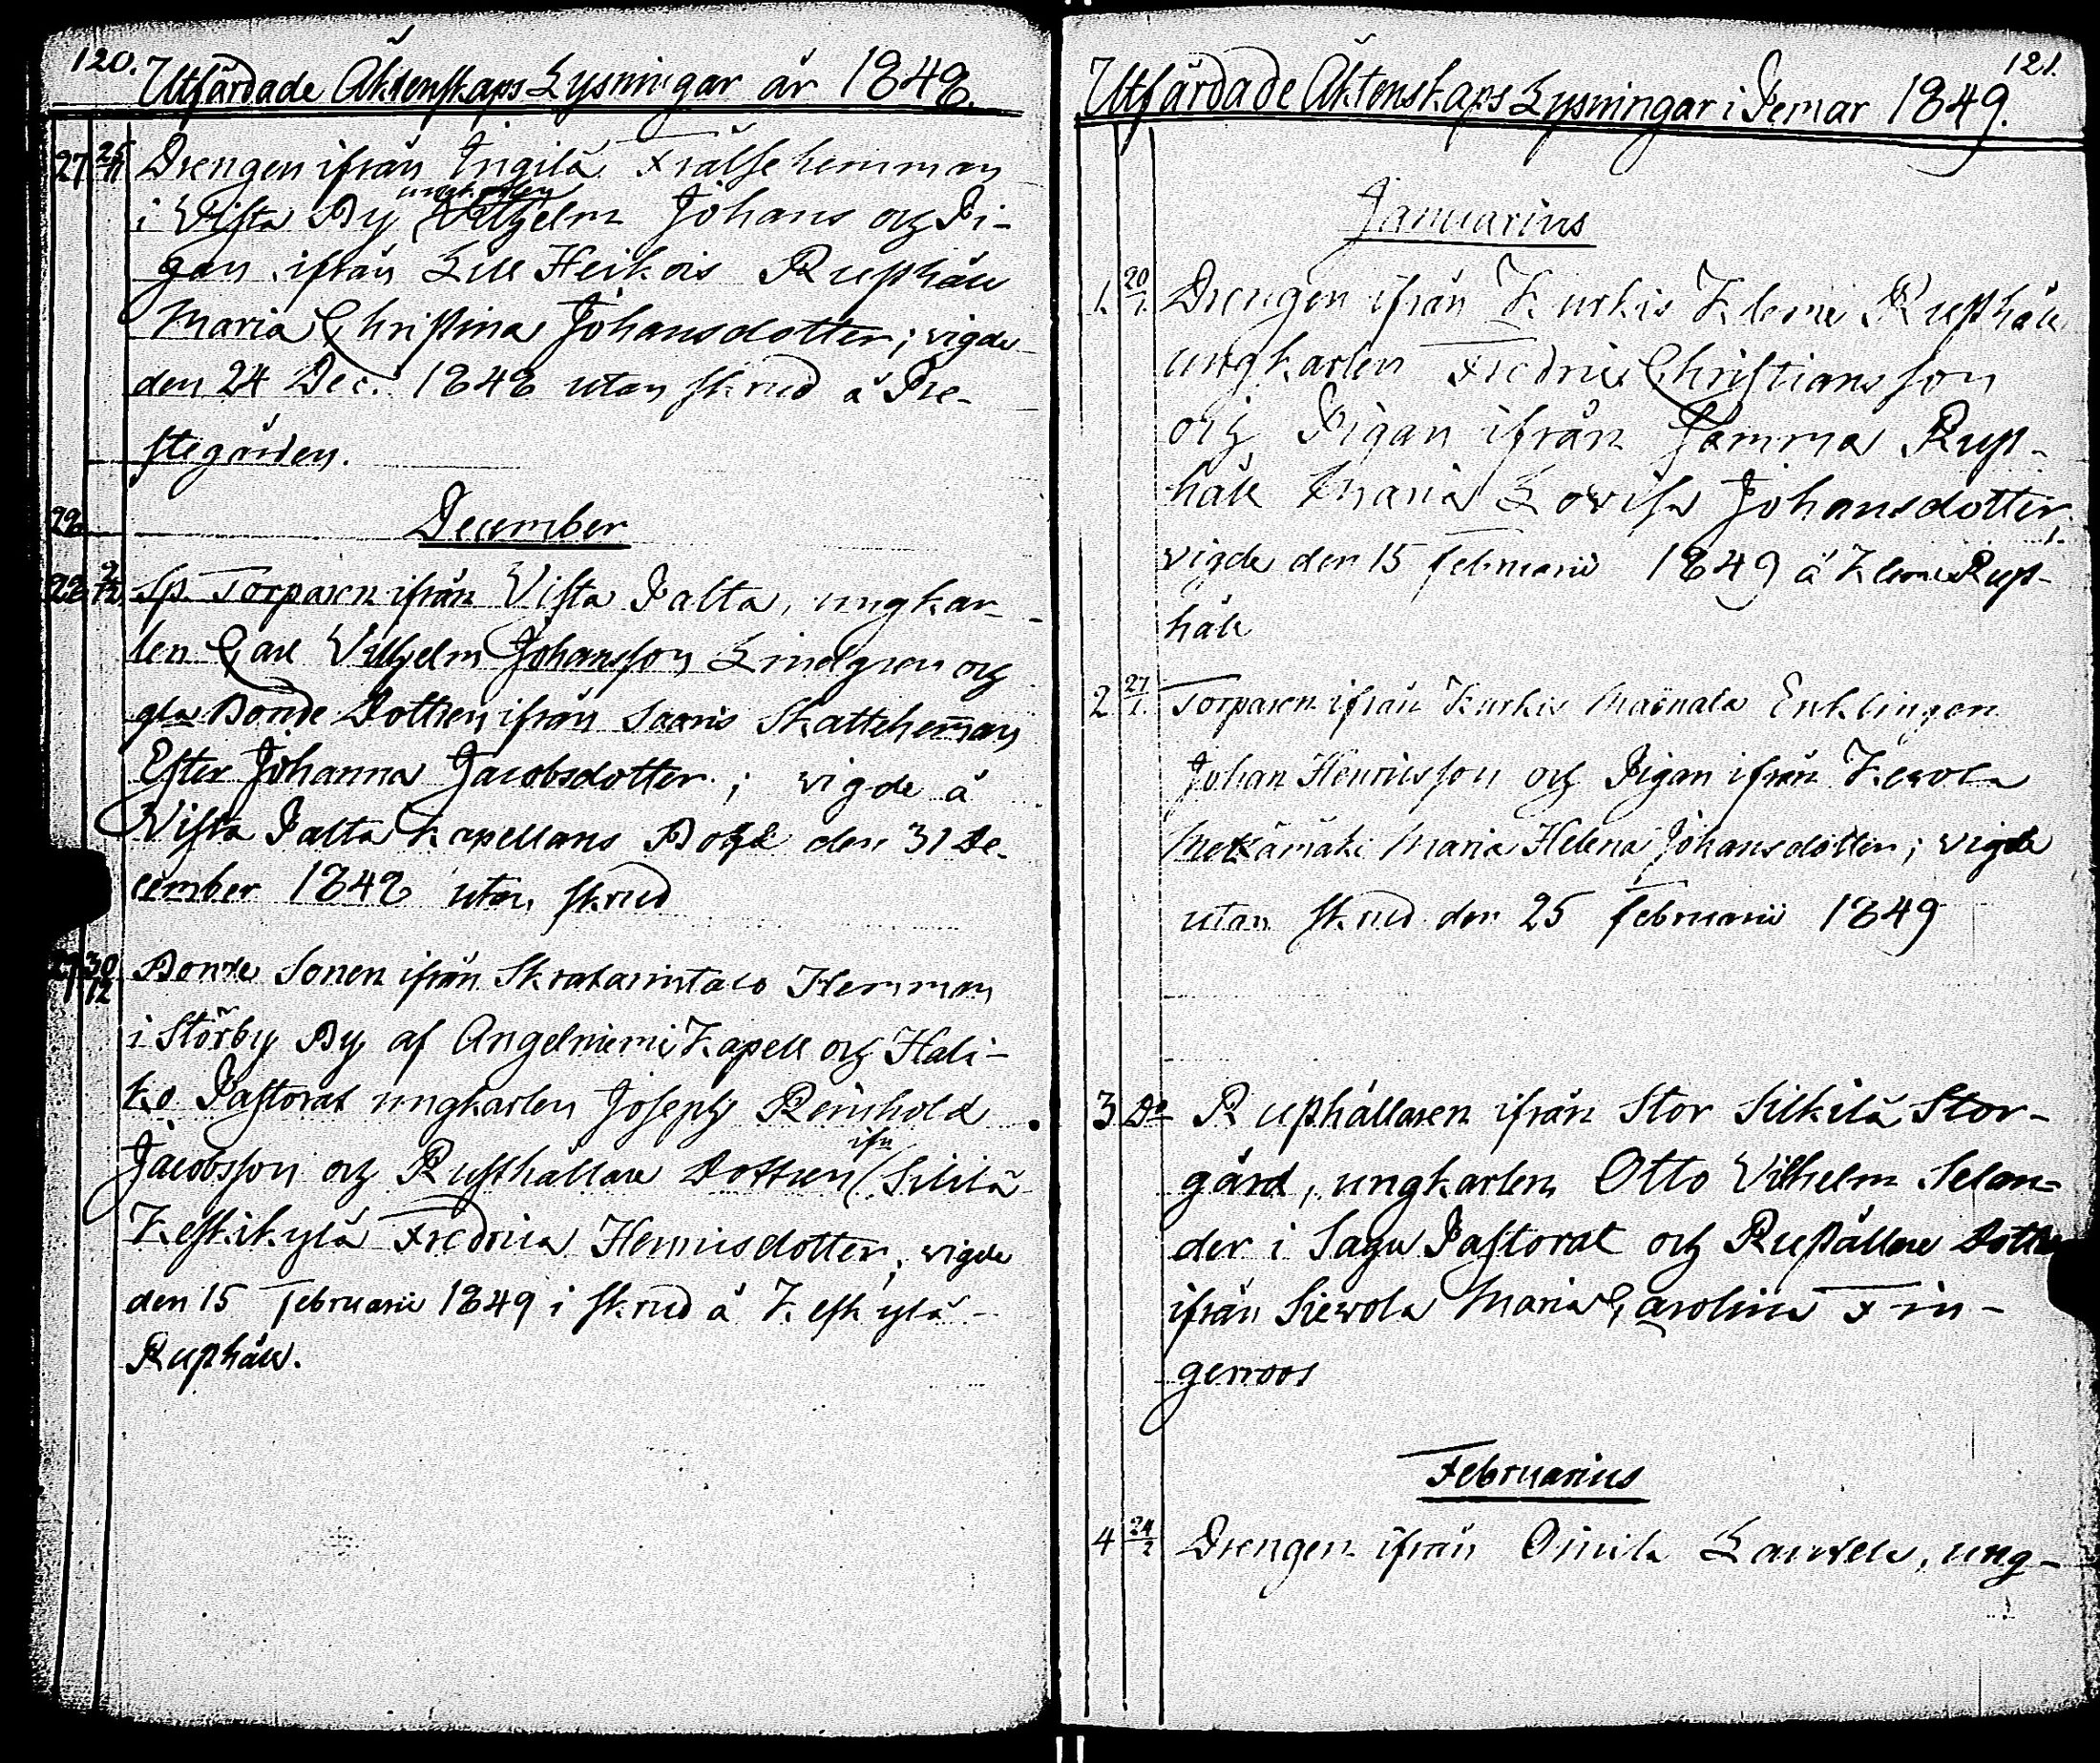 120.
Utfärdade Äktenskaps Lysningar år 1848.
27 25/11 Drengen ifrån Ingilä Frälse hemman
ungkarlen
i Vista By Vilhjelm Johans och Pi-
gan ifrån Lill Heikois Rusthåll
Maria Christina Johansdotter; vigde
den 24 Dec. 1848 utan skrud å Pre-
stegården.
28
December
28 9/12 Sp. Torparen ifrån Vista Palta, ungkar-
len Carl Vilhjelm Johansson Lindgren och
gla Bonde Dottren ifrån Saaris Skattehem̅an
Ester Johanna Jacobsdotter; vigde å
Vista Palta Kapellans Bohl den 31 De-
cember 1848 utan skrud
30/12 Bonde Sonen ifrån Hemman
i Störby By af Angelniemi Kapell och Hali-
ko Pastorat ungkarlen Joseph Reinhold
ifn
Jacobsson och Rusthållare Dottren Sililä
Keskikylä Fredrica Henricsdotter, vigde
den 15 Februarii 1849 i skrud å Keskikylä
Rusthåll.
121.
Utfärdade Äktenskaps Lysningar i Pemar 1849.
Januarius
1. 20/1. Drengen ifrån Kurkis Klemi Rusthåll
ungkarlen Fredric Christiansson
och Pigan ifrån samma Rust-
håll Maria Lovisa Johansdotter,
vigde den 15 februarii 1849 å Klemi Rust-
håll
2 27/1. Torparen ifrån Kurkis Enklingen
Johan Henricsson och Pigan ifrån Kevola
Metsämäki Maria Helena Johansdotter; vigde
utan skrud den 25 februarii 1849
3 Do Rusthållaren ifrån Stor Silkilä Stor-
gård, ungkarlen Otto Vilhelm Selan-
der i Sagu Pastorat och Rustållare Dottren
ifrån Sievola Maria Carolina Fin-
gerroos
Februarius
4 24/2 Drengen ifrån ung-